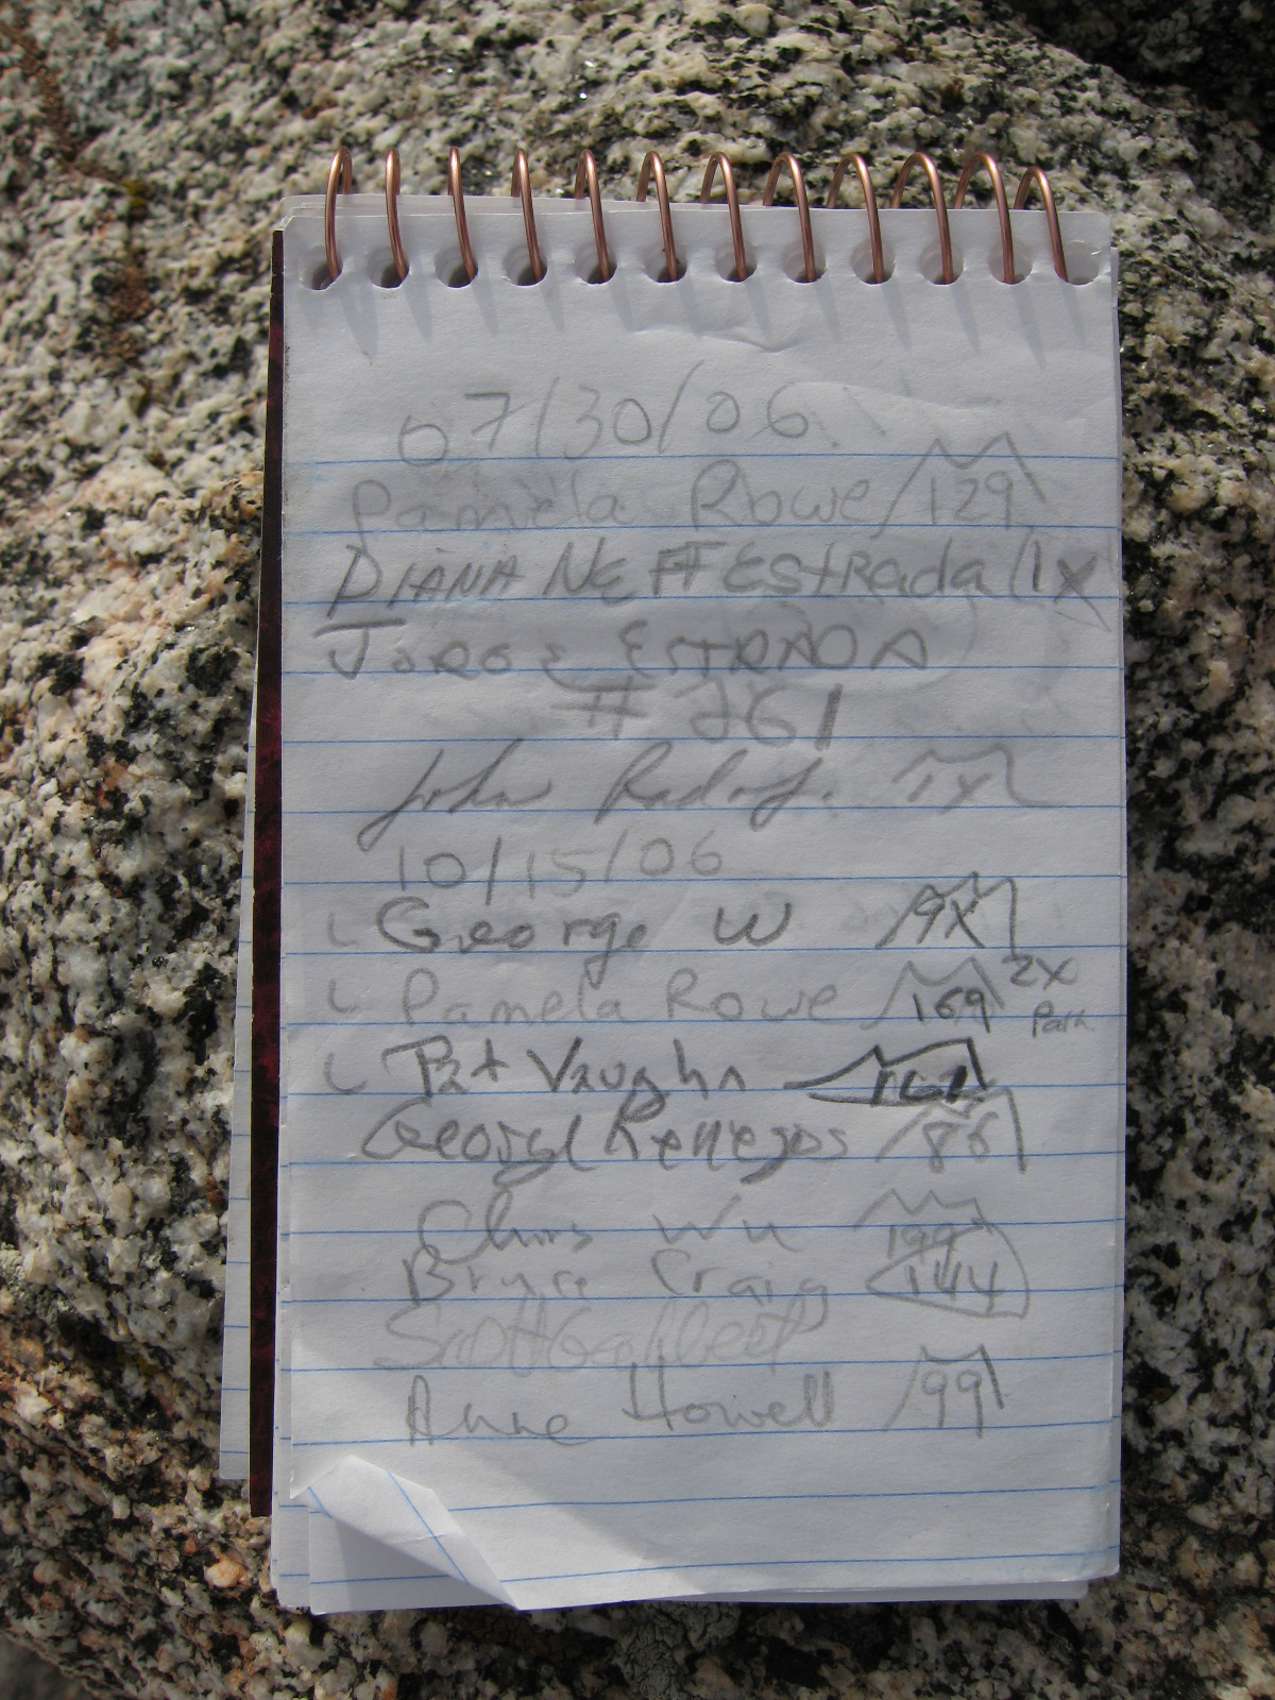 07/30/06
Pamela Rowe 129
DIANA NEFF Estrada 1X
JORGE ESTRADA
# 261
John 1X
10/15/06
George W 9X
Pamela Rowe 169 2X
Pat Vaughn 161
George 86
Chris Wu 199
Bryce Craig 144
Anne Howell 99